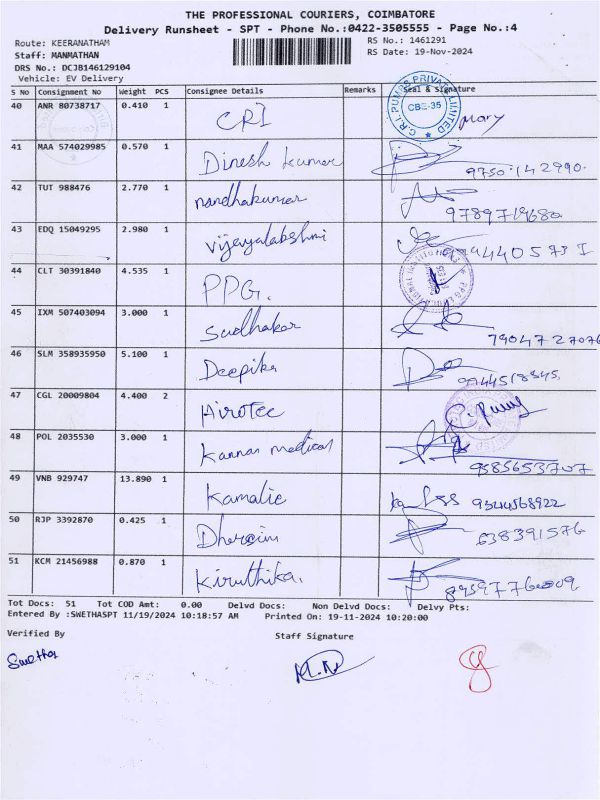 THE PROFESSIONAL COURIERS, COIMBATORE
Delivery Runsheet - SPT - Phone No.:0422-3505555 - Page No.:4
Route: KEERANATHAM
RS No.: 1461291
Staff: MANMATHAN
RS Date: 19-Nov-2024
DRS No.: DCJB146129104
Vehicle: EV Delivery
S No Consignment No Weight PCS Consignee Details Remarks Seal & Signature
40 ANR 80738717 0.410 1 CRI Mary
C.R.I. PUMPS PRIVATE LIMITED
CBE-35
41 MAA 574029985 0.570 1 Dinesh kumar 9750142990.
42 TUT 988476 2.770 1 nandhakumar 9789719680
43 EDQ 15049295 2.980 1 vijayalakshmi
44 CLT 30391840 4.535 1 PPG.
45 IXM 507403094 3.000 1 Sudhakar 7904727076
46 SLM 358935950 5.100 1 Deepika 9944518845.
47 CGL 20009804 4.400 2 Airotec
48 POL 2035530 3.000 1 Kannan medical 9585653707
49 VNB 929747 13.890 1 9344568922
50 RJP 3392870 0.425 1 638391576
51 KCM 21456988 0.870 1 Kiruthika.
Tot Docs: 51 Tot COD Amt: 0.00 Delvd Docs: Non Delvd Docs: Delvy Pts:
Entered By :SWETHASPT 11/19/2024 10:18:57 AM Printed On: 19-11-2024 10:20:00
Verified By Staff Signature
Swetha